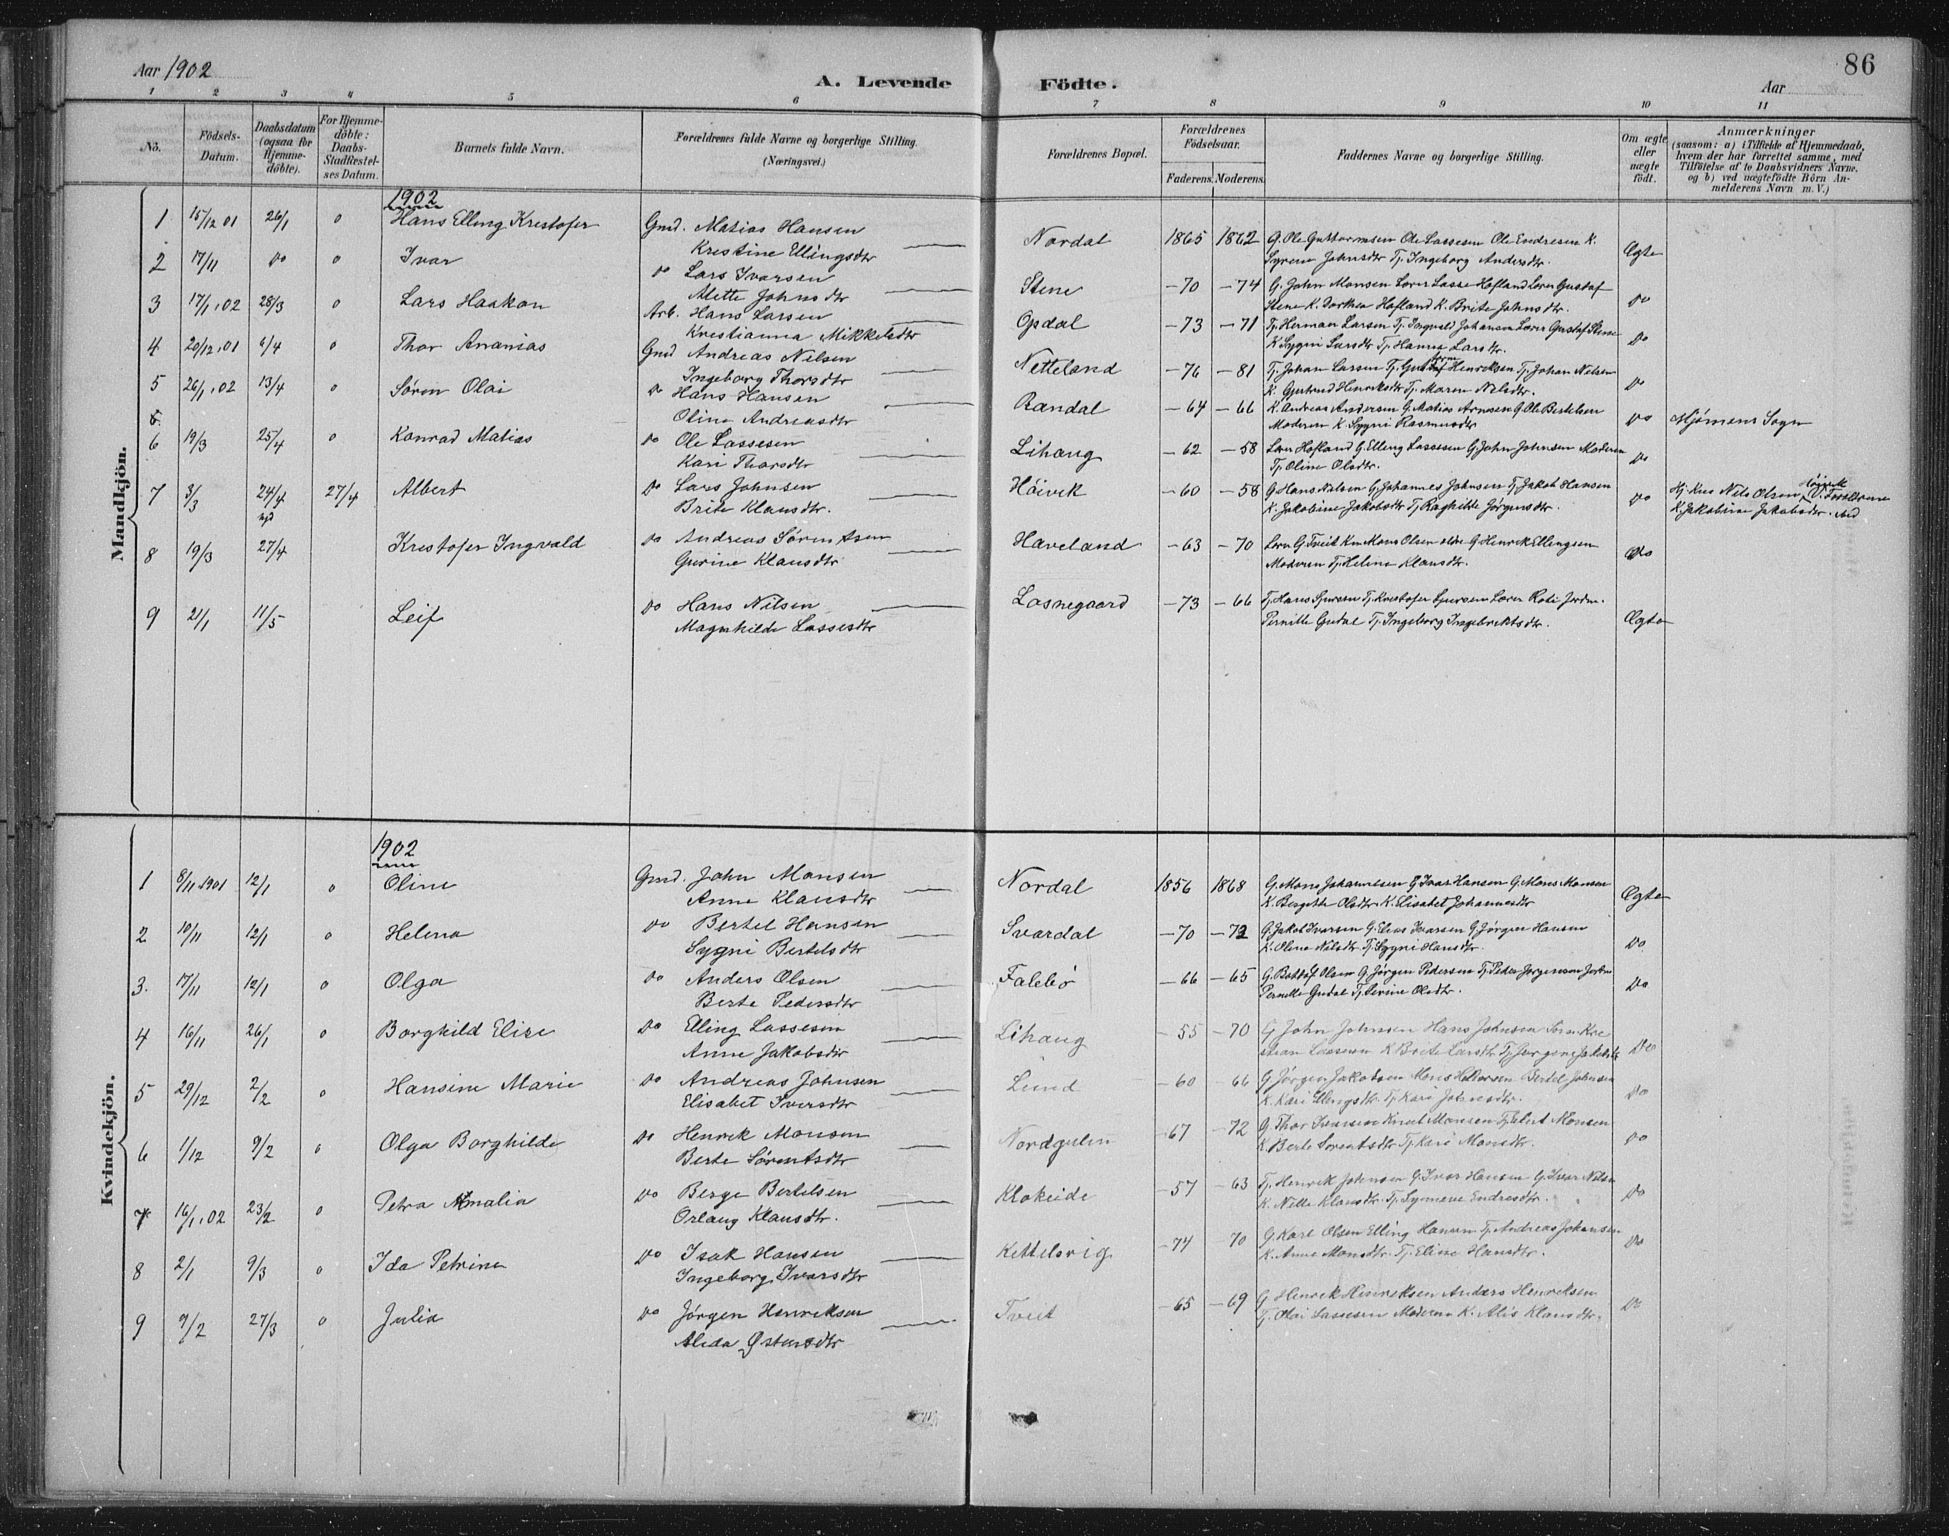 Aar 1902
A. Levende Födte.
Aar
86
1 2 3 4 5 6 7 8 9 10 11
No.
Födsels-Datum.
Daabsdatum (ogsaa for Hjemmedöbte).
For Hjemmedöbte: Daabs-Stadfæstelses Datum.
Barnets fulde Navn.
Forældrenes fulde Navne og borgerlige Stilling. (Næringsvei.)
Forældrenes Bopæl.
Forældrenes Födselsaar.
Faderens. Moderens.
Faddernes Navne og borgerlige Stilling.
Om ægte eller uægte födt.
Anmærkninger (saasom: a) i Tilfælde af Hjemmedaab, hvem der har forrettet samme, med Tilföielse af to Daabsvidners Navne. og b) ved uægtefödte Börn Anmelderens Navn m. V.)
Mandkjön.
1902
1 15/12 01 26/1 0 Hans Elling Krestofer Gmd. Matias Hansen Nordal 1865 1862 G. Ole Guttormsen Ole Lassesen Ole Endresen K.
Kristine Ellingsdtr Syrene Johnsdtr Tj. Ingeborg Andersdtr Ægte
2 17/11 do 0 Ivar do Lars Ivarsen Stene -70 -74 G. John Monsen Lærer Lasse Hofland Lærer Gustaf
Alette Johnsdtr Stene K. Dorthea Hofland K. Brite Johnsdtr. do
3 17/1, 02 28/3 0 Lars Haakon Arb. Hans Larsen Opdal -73 -71 Tj. Herman Larsen Tj. Ingvald Johansen Lærer Gustaf Stene
Krestianna Mikkelsdtr K Sygni Larsdtr Tj. Hanna Larsdtr. do
4 20/12, 01 6/4 0 Thor Ananias Gmd Andreas Nilsen Netteland -76 -81 Tj. Johan Larsen Tj. Henriksen Tj. Johan Nilsen
Ingeborg Thorsdtr K. Gjertrud Henriksdtr Tj. Maren Nilsdtr. do
5 26/1, 02 13/4 0 Søren Olai do Hans Hansen Randal -64 -66 K. Andreas Andersen G. Matias Arnesen G. Ole Bertelsen
Oline Andreasdtr Moderen K. Sygni Rasmusdtr do Mjømens Sogn
6 19/3 25/4 0 Konrad Matias do Ole Lassesen Lihaug -62 -58 Lærer Hofland G. Elling Lassesen G. John Johnsen Moderen
Kari Thorsdtr Tj. Oline Olsdtr. do
7 3/3 24/4 27/4 Albert do Lars Johnsen Høivik -60 -58 G. Hans Nilsen G. Johannes Johnsen Tj. Jakob Hansen
Brite Klausdtr. K. Jakobine Jakobsdtr Tj. Raghilde Jørgensdtr. do Nils Olsen Høivik
K. Jakobine Jakobsdtr.
8 19/3 27/4 Krestofer Ingvald do Andreas Sørensen Haveland -63 -70 G. Tveit Mons Olsen G. Henrik Ellingsen
Gurine Klausdtr Moderen Tj. Helene Klausdtr. do
9 21/1 11/5 Leif do Hans Nilsen Losnegaard -73 -66 Tj. Hans Tj. Krestofer Lærer
Magnhilde Lassesdtr Pernille Gudal Tj. Ingeborg Ingebriktsdtr. Ægte
Kvindekjön.
1902
1 8/11 1901 12/1 0 Oline Gmd. John Monsen Nordal 1856 1868 G. Mons Johannesen G Ivar Hansen G. Mons Monsen
Anne Klausdtr K. Bergitte Olsdtr. K. Lisabet Johannesdtr Ægte
2 10/11 12/1 0 Helena do Bertel Hansen Svardal -70 -72 G. Jakob Ivarsen G. Elias Ivarsen G. Jørgen Hansen
Sygni Bertelsdtr K. Olena Nilsdtr. Tj. Sygni Hansdtr. do
3. 17/11 12/1 0 Olga do Anders Olsen Falebø -66 -65 G. Botolf Olsen G. Jørgen Pedersen Tj. Peder Jørgensen
Berte Pedersdtr Pernille Gudal Tj. Olsdtr. do
4 16/11 26/1 0 Borghild Elise do Elling Lassesen Lihaug -55 -70 G. John Johnsen Hans Johnsen
Anne Jakobsdtr Lassesen K. Brite Larsdtr Tj. do
5 29/12 2/2 0 Hansine Marie do Andreas Johnsen Lund -60 -66 G. Jørgen Jakobsen Mons Bertel Johnsen
Elisabet Iversdtr K. Kari Ellingsdtr. Tj. Kari Johnsdtr. do
6 1/12 9/2 0 Olga Borghilde do Henrik Monsen Nordgulen -67 -72 G. Thor Knut Monsen Monsen
Berte Sørensdtr K. Berte Sørensdtr Tj. Kari Monsdtr. do
7 16/1, 02 23/2 0 Petra Amalia do Berge Bertelsen Klokeide -57 -63 Tj. Henrik Johnsen G. Ivar Hansen G. Ivar Nilsen
Orlaug Klausdtr. K. Nille Klausdtr. Tj. Synneve Endresdtr. do
8 2/1 9/3 0 Ida Petrine do Isak Hansen Kettelsvig -74 70 G. Karl Olsen Elling Hansen Tj. Andreas Johansen
Ingeborg Ivarsdtr K. Anne Monsdtr. Tj. Eline Hansdtr. do
9 7/2 27/3 0 Julia do Jørgen Henriksen Tveit -65 -69 G. Henrik Henriksen Anders Henriksen
Alida Østensdtr Tj. Olai Lassesen Moderen K. Alis Klausdtr. do